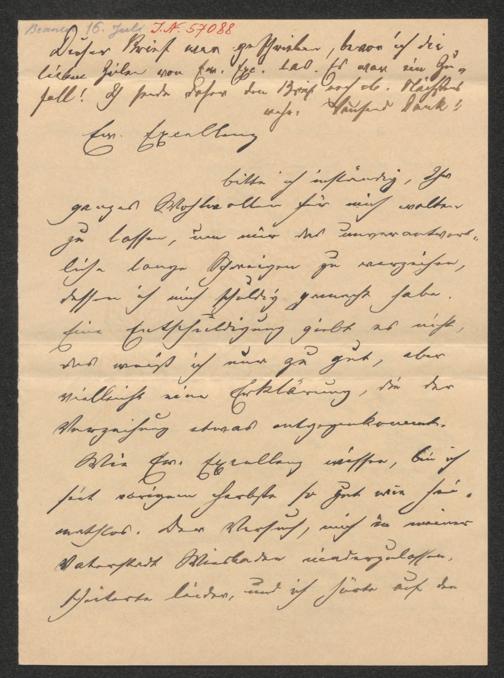 Branco 16. Juli I.N. 57088
Dieser Brief war geschrieben, bevor ich die
lieben Zeilen von Ew. Exc. las. Es war ein Zu-
fall! Ich sende daher den Brief noch ab.
mehr. Tausend Dank!
Ew. Excellenz
bitte ich inständig, Ihr
ganzes Wohlwollen für mich walten
zu lassen, um mir das unverantwort-
liche lange Schweigen zu verzeihen,
dessen ich mich schuldig gemacht habe.
Eine Entschuldigung giebt es nicht,
das weiß ich nur zu gut, aber
vielleicht eine Erklärung, die der
Verzeihung etwas entgegenkommt.
Wie Ew. Excellenz wissen, bin ich
seit vorigem Herbste so gut wie hei-
mathlos. Der Versuch, mich in meiner
Vaterstadt Wiesbaden niederzulassen,
scheiterte leider, und ich hörte auf den